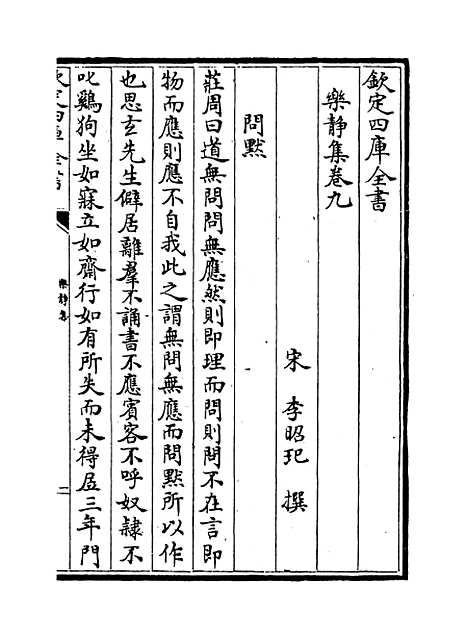 欽定四庫全書
樂静集巻九
宋 李昭玘 撰
問黙
莊周曰道無問問無應然則即理而問則問不在言即
物而應則應不自我此之謂無問無應而問黙所以作
也思𤣥先生僻居離羣不誦書不應賓客不呼奴隸不
叱鷄狗坐如寐立如齋行如有所失而未得居三年門
欽定四庫全書
樂静集